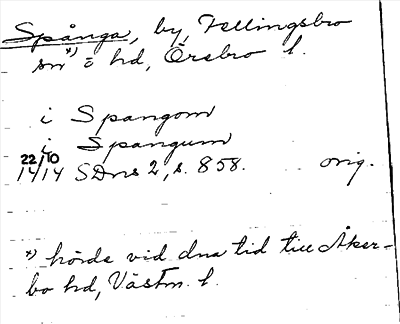 Spånga, by, Fellingsbro
sn*) o hd, Örebro l.
i Spangom
i Spangum
22/10
1414 SDns 2, s. 858. orig.
*) hörde vid dna tid till Åker-
bo hd, Västm. l.